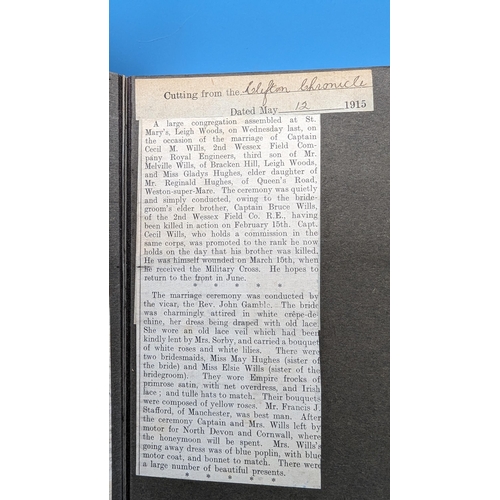 Cutting from the Clifton Chronicle
Dated May 12 1915
A large congregation assembled at St.
Mary's, Leigh Woods, on Wednesday last, on
the occasion of the marriage of Captain
Cecil M. Wills, 2nd Wessex Field Com-
pany Royal Engineers, third son of Mr.
Melville Wills, of Bracken Hill, Leigh Woods,
and Miss Gladys Hughes, elder daughter of
Mr. Reginald Hughes, of Queen's Road,
Weston-super-Mare. The ceremony was quietly
and simply conducted, owing to the bride-
groom's elder brother, Captain Bruce Wills,
of the 2nd Wessex Field Co. R.E., having
been killed in action on February 15th. Capt.
Cecil Wills, who holds a commission in the
same corps, was promoted to the rank he now
holds on the day that his brother was killed.
He was himself wounded on March 15th, when
he received the Military Cross. He hopes to
return to the front in June.
* * * * *
The marriage ceremony was conducted by
the vicar, the Rev. John Gamble. The bride
was charmingly attired in white crêpe-de-
chine, her dress being draped with old lace.
She wore an old lace veil which had been
kindly lent by Mrs. Sorby, and carried a bouquet
of white roses and white lilies. There were
two bridesmaids, Miss May Hughes (sister of
the bride) and Miss Elsie Wills (sister of the
bridegroom). They wore Empire frocks of
primrose satin, with net overdress, and Irish
lace; and tulle hats to match. Their bouquets
were composed of yellow roses. Mr. Francis J.
Stafford, of Manchester, was best man. After
the ceremony Captain and Mrs. Wills left by
motor for North Devon and Cornwall, where
the honeymoon will be spent. Mrs. Wills's
going away dress was of blue poplin, with blue
motor coat, and bonnet to match. There were
a large number of beautiful presents.
* * * * *